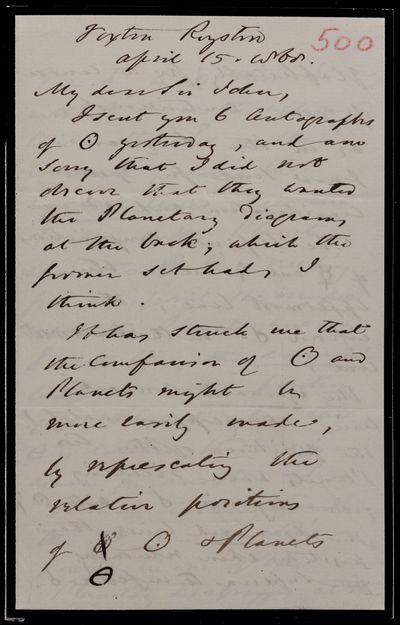 500
Foxton Royston
April 15.
My dear Sir John,
I sent you 6 Autographs
of ☉ yesterday, and am
sorry that I did not
discover that they wanted
the Planetary diagrams,
at the back; which the
former set had, I
think.
It has struck me that
the Comparison of ☉ and
Planets might be
more easily made,
by representing the
relative positions
of ☉ & Planets